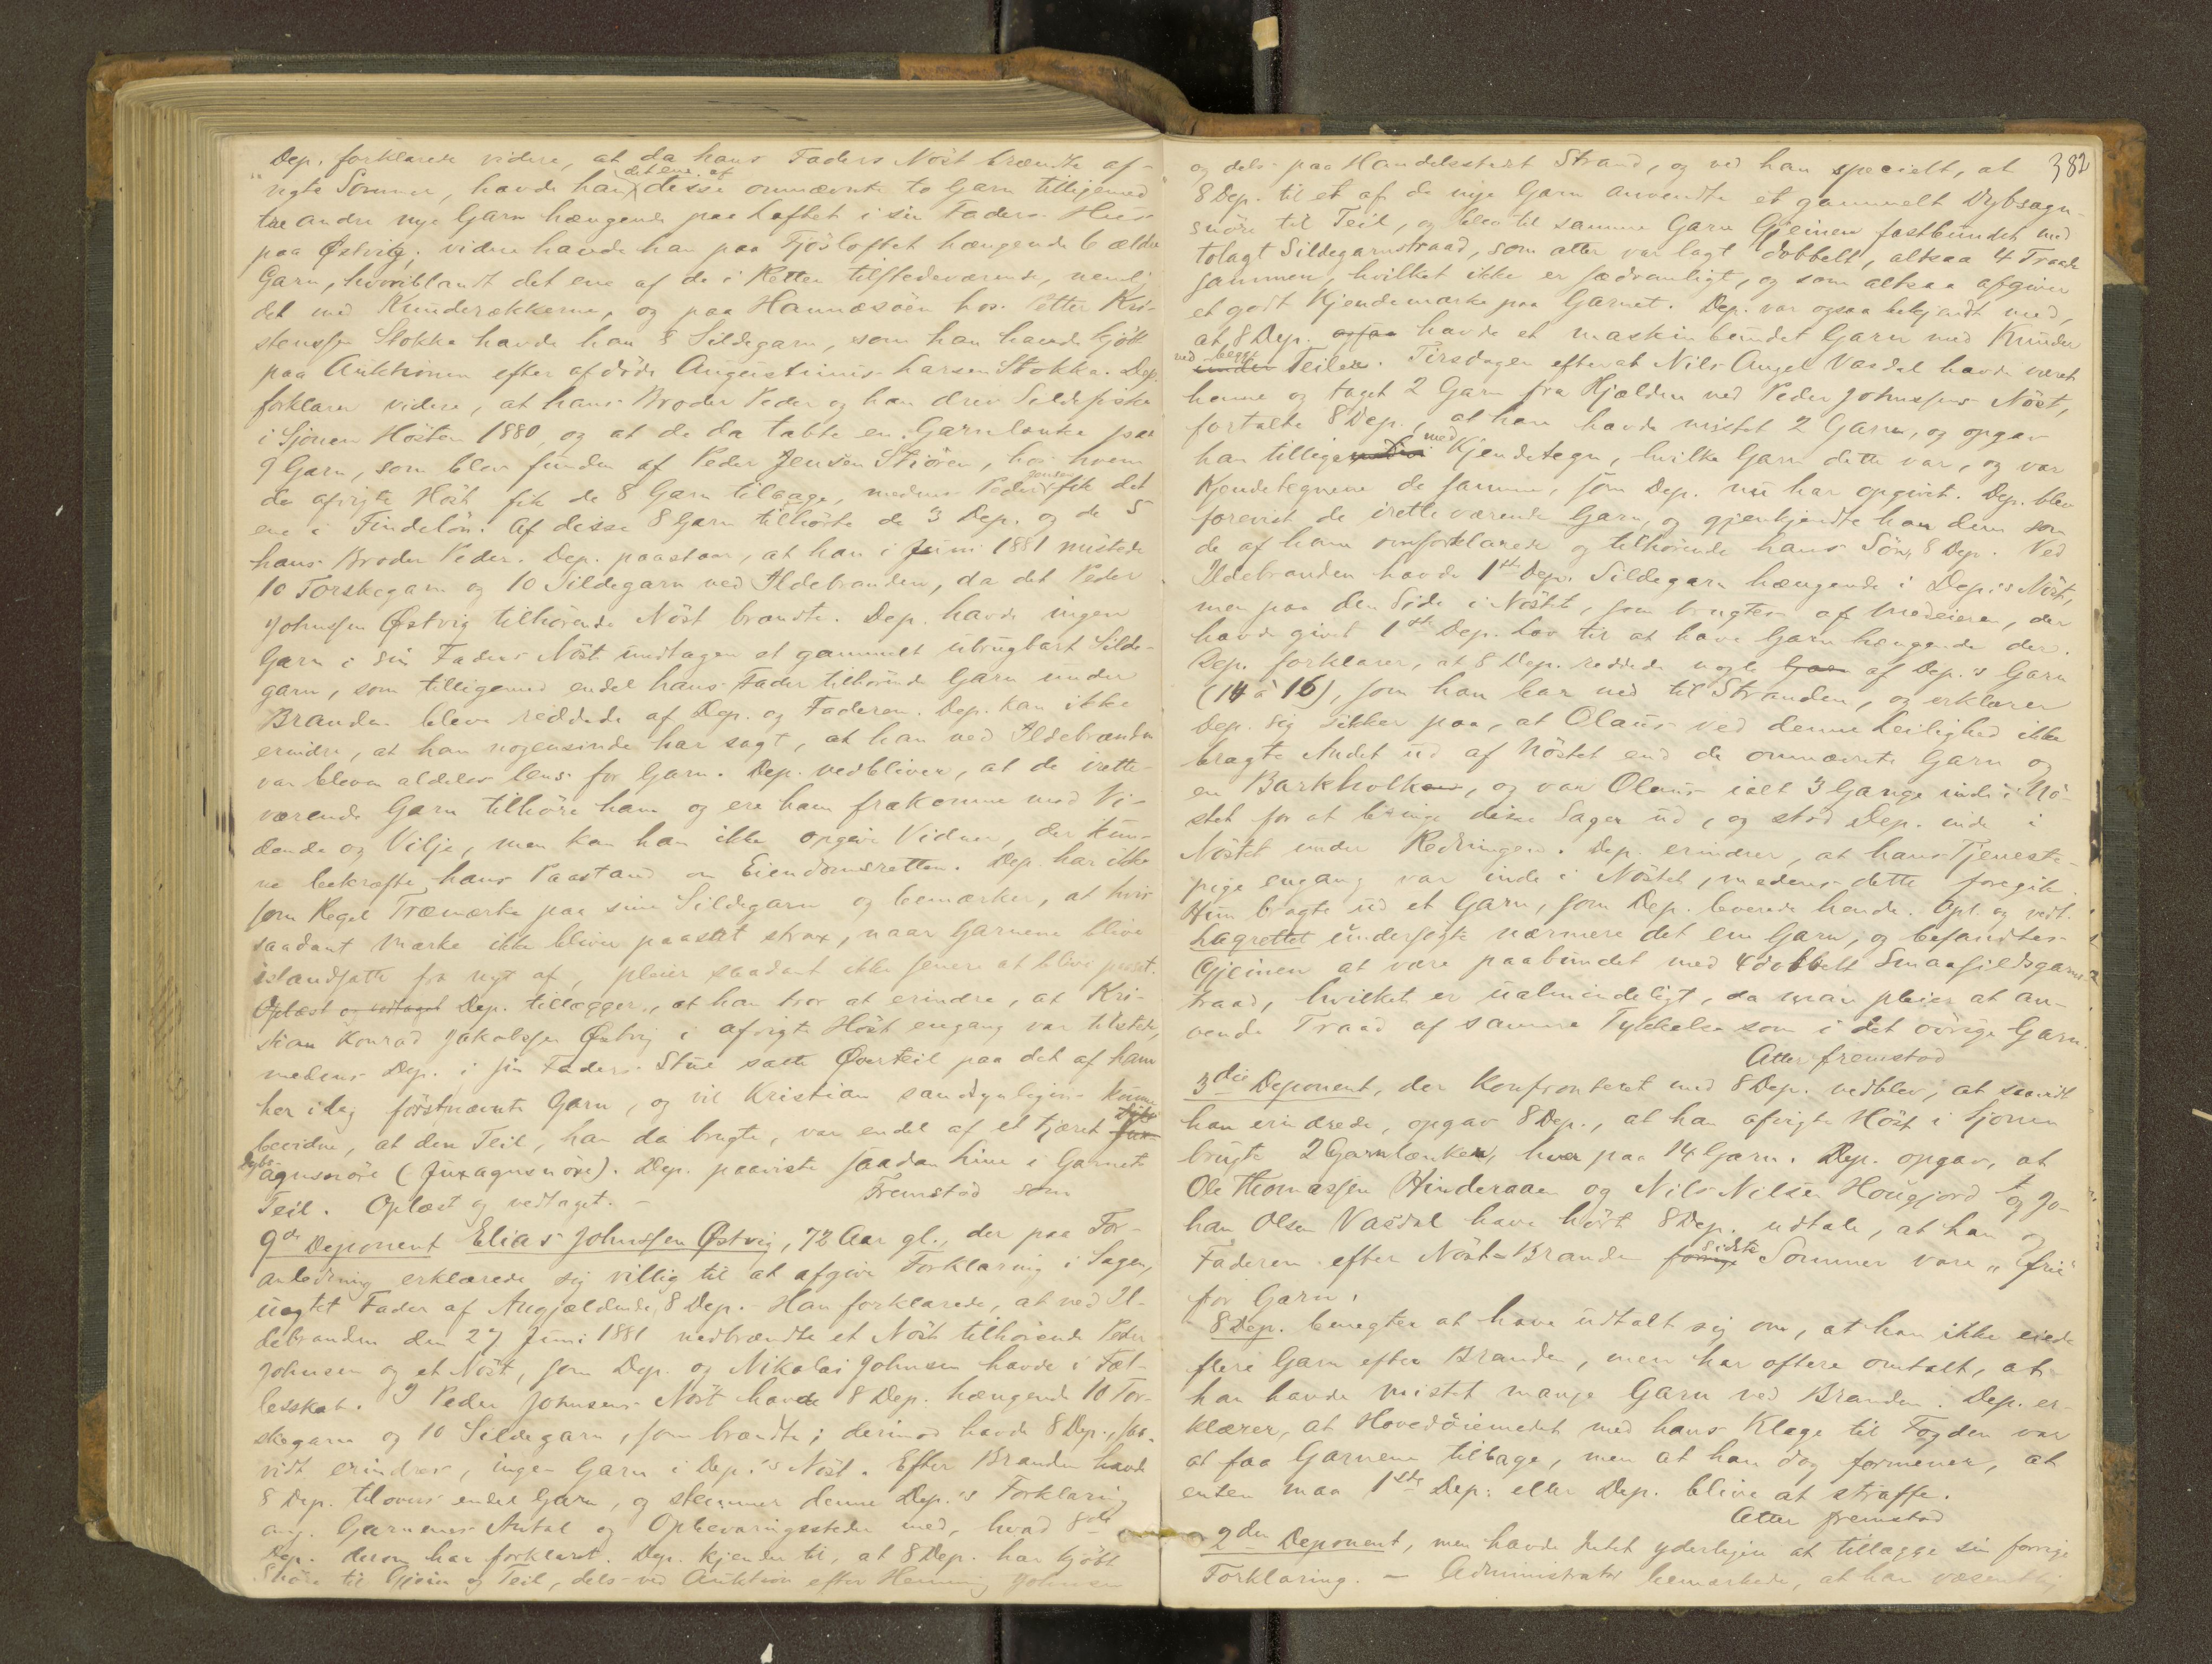 Dep. forklarede videre, at da hans Faders Nöst brændte af-
vigte Sommer, havde han det ene af disse omnævnte to Garn tilligemed
tre andre nye Garn hængende paa Loftet i sin Faders Hus
paa Østvig; videre havde han paa Fjösloftet hængende 6 ældre
Garn, hvoriblandt det ene af de i Retten tilstedeværende, nemlig
det med Kunderækkerne, og paa Hannæsöen hos Petter Kri-
stenssen Stokka havde han 8 Sildegarn, som han havde kjöbt
paa Auktionen efter afdöde Augustinus Larsen Stokka. Dep.
forklarer videre, at hans Broder Peder og han drev Sildefiske
i Sjonen Hösten 1880, og at de da tabte en Garnlænke paa
9 Garn, som blev funden af Peder Jensen Stiören, hos hvem
de afvigte Höst fik de 8 Garn tilbage, medens Peder Jensen fik det
ene i Findelön. Af disse 8 Garn tilhörte de 3 Dep. og de 5
hans Broder Peder. Dep. paastaar, at han i Juni 1881 mistede
10 Torskegarn og 10 Sildegarn ved Ildebranden, da det Peder
Johnssen Østvig tilhörende Nöst brændte. Dep. havde ingen
Garn i sin Faders Nöst undtagen et gammelt ubrugbart Silde-
garn, som tilligemed endel hans Fader tilhörende Garn under
Branden bleve reddede af Dep. og Faderen. Dep. kan ikke
erindre, at han nogensinde har sagt, at han ved Ildebranden
var bleven aldeles læns for Garn. Dep. vedbliver, at de irette-
værende Garn tilhöre ham og ere ham frakomne mod Vi-
dende og Vilje, men kan han ikke opgive Vidner, der kun-
ne bekræfte hans Paastand om Eiendomsretten. Dep. har ikke
som Regel Træmærke paa sine Sildegarn og bemærker, at hvis
saadant Mærke ikke bliver paasat strax, naar Garnene blive
istandsatte fra nyt af, pleier saadant ikke senere at blive paasat.
Oplæst og vedtaget Dep. tillægger, at han tror at erindre, at Kri-
stian Konrad Jakobssen Østvig i afvigte Höst engang var tilstede,
medens Dep. i sin Faders Stue satte Overteil paa det af ham
her idag förstnævnte Garn, og vil Kristian sandsynligvis kunne
bevidne, at den Teil, han da brugte, var endel af et tjæret
Dybsagnsnöre (Juxagnsnöre). Dep. paaviste saadan Line i Garnets
Teil. Oplæst og vedtaget. - Fremstod som
9de Deponent Elias Johnssen Østvig, 72 Aar gl., der paa For-
anledning erklærede sig villig til at afgive Forklaring i Sagen,
uagtet Fader af Angjældende, 8 Dep. - Han forklarede, at ved Il-
debranden den 27 Juni 1881 nedbrændte et Nöst tilhörende Peder
Johnsen og et Nöst, som Dep. og Nikolai Johnsen havde i Fæl-
lesskab. I Peder Johnsens Nöst havde 8 Dep. hængende 10 Tor-
skegarn og 10 Sildegarn, som brændte; derimod havde 8 Dep., saa-
vidt erindres, ingen Garn i Dep.'s Nöst. Efter Branden havde
8 Dep. tilovers endel Garn, og stemmer denne Dep.'s Forklaring
ang. Garnenes Antal og Opbevaringssteder med, hvad 8de
Dep. derom har forklaret. Dep. kjender til, at 8 Dep. har kjöbt
Snöre til Gjein og Teil, dels ved Auktion efter Henning Johnsen
382
og dels paa Handelsstedet Strand, og ved han specielt, at
8 Dep. til et af de nye Garn anvendte et gammelt Dybsagn-
snöre til Teil, og blev til samme Garn Gjeinen fastbundet med
tolagt Sildegarnstraad, som atter var lagt dobbelt, altsaa 4 Traade
sammen, hvilket ikke er sædvanligt, og som altsaa afgiver
et godt Kjendemærke paa Garnet. Dep. var ogsaa bekjendt med,
at 8 Dep. ogsaa havde et maskinbundet Garn med Kunder
ved begge under Teilen. Tirsdagen efterat Nils Angel Vasdal havde været
henne og taget 2 Garn fra Hjælden ved Peder Johnssens Nöst,
fortalte 8 Dep., at han havde mistet 2 Garn, og opgav
han tilligemed Kjendetegn, hvilke Garn dette var, og var
Kjendetegnene de samme, som Dep. nu har opgivet. Dep. blev
forevist de iretteværende Garn, og gjenkjendte han dem som
de af ham omforklarede og tilhörende hans Sön, 8 Dep. Ved
Ildebranden havde 1ste Dep. Sildegarn hængende i Dep.'s Nöst,
men paa den Side i Nöstet, som brugtes af Medeieren, der
havde givet 1ste Dep. Lov til at have Garn hængende der.
Dep. forklarer, at 8 Dep. reddede nogle Garn af Dep.'s Garn
(14 à 16), som han bar ned til Stranden, og erklærer
Dep. sig sikker paa, at Olaus ved denne Leilighed ikke
bragte Andet ud af Nöstet end de omnævnte Garn og
en Barkholk, og var Olaus ialt 3 Gange inde i Nö-
stet for at bringe disse Sager ud, og stod Dep. inde i
Nöstet under Redningen. Dep. erindrer, at hans Tjeneste-
pige engang var inde i Nöstet, medens dette foregik.
Hun bragte ud et Garn, som Dep. leverede hende. Opl. og vedt.
Lagrettet undersögte nærmere det ene Garn, og befandtes
Gjeinen at være paabundet med 4 dobbelt Smaasildsgarns-
traad, hvilket er ualmindeligt, da man pleier at an-
vende Traad af samme Tykkelse som i det övrige Garn.
Atter fremstod
3die Deponent, der konfronteret med 8 Dep. vedblev, at saavidt
han erindrede, opgav 8 Dep., at han afvigte Höst i Sjonen
brugte 2 Garnlænker, hver paa 14 Garn. Dep. opgav, at
Ole Thomassen Hinderaaen og Nils Nilsen Hougjord og Jo-
han Olsen Vasdal have hört 8 Dep. udtale, at han og
Faderen efter Nöst-Branden forrige sidste Sommer vare "frie"
for Garn.
8 Dep. benegter at have udtalt sig om, at han ikke eiede
flere Garn efter Branden, men har oftere omtalt, at
han havde mistet mange Garn ved Branden. Dep. er-
klærer, at Hovedöiemedet med hans Klage til Fogden var
at faa Garnene tilbage, men at han dog formener, at
enten maa 1ste Dep. eller Dep. blive at straffe.
Atter fremstod
2den Deponent, men havde Intet yderligere at tillægge sin forrige
Forklaring. - Administrator bemærkede, at han væsentlig